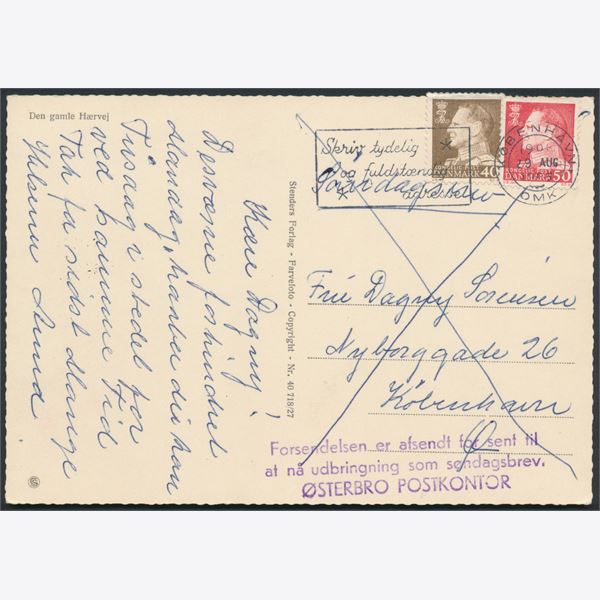 Den gamle Hærvej
Kære Dagny!
Desværre forhindret
Mandag, hvorfor
Tirsdag i stedet for
ved samme Tid
Tak for sidst
Hilsen
Stenders Forlag - Farvefoto - Copyright - Nr. 40 718/27
Skriv tydelig
og fuldstændig
adresse
DANMARK 40
KONGELIG POST
DANMARK 50
KØBENHAVN
29 AUG
OMK
Søndagsbrev
Frk Dagny Sørensen
Nyborggade 26
København
Ø
Forsendelsen er afsendt for sent til
at nå udbringning som søndagsbrev.
ØSTERBRO POSTKONTOR